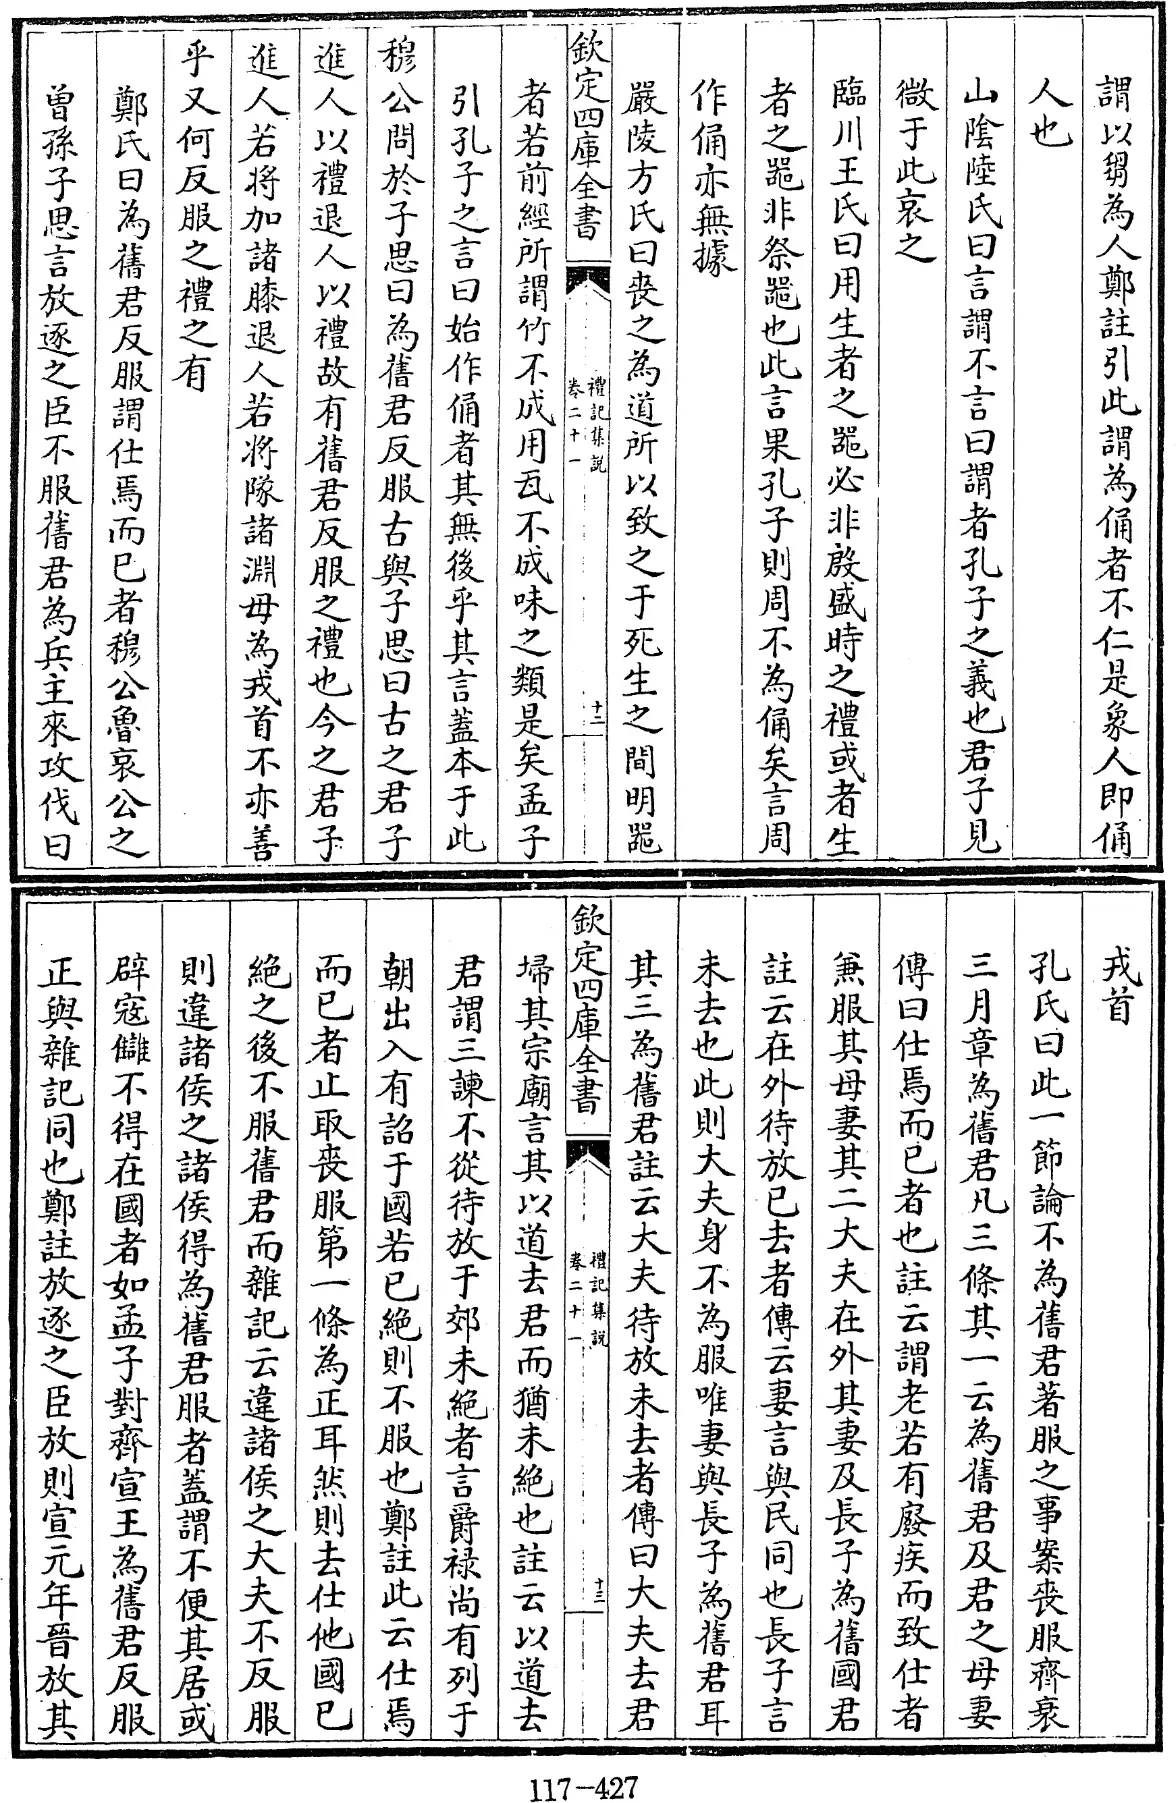 謂以芻為人鄭註引此謂為俑者不仁是象人即俑
人也
山陰陸氏曰言謂不言曰謂者孔子之義也君子見
微于此哀之
臨川王氏曰用生者之噐必非殷盛時之禮或者生
者之噐非祭噐也此言果孔子則周不為俑矣言周
作俑亦無據
嚴陵方氏曰喪之為道所以致之于死生之間明噐
欽定四庫全書
禮記集說
卷二十一
十二
者若前經所謂竹不成用瓦不成味之類是矣孟子
引孔子之言曰始作俑者其無後乎其言蓋本于此
穆公問於子思曰為舊君反服古與子思曰古之君子
進人以禮退人以禮故有舊君反服之禮也今之君子
進人若將加諸膝退人若將隊諸淵毋為戎首不亦善
乎又何反服之禮之有
鄭氏曰為舊君反服謂仕焉而已者穆公魯哀公之
曾孫子思言放逐之臣不服舊君為兵主來攻伐曰
戎首
孔氏曰此一節論不為舊君著服之事案喪服齊衰
三月章為舊君凡三條其一云為舊君及君之母妻
傳曰仕焉而已者也註云謂老若有廢疾而致仕者
兼服其母妻其二大夫在外其妻及長子為舊國君
註云在外待放已去者傳云妻言與民同也長子言
未去也此則大夫身不為服唯妻與長子為舊君耳
其三為舊君註云大夫待放未去者傳曰大夫去君
欽定四庫全書
禮記集說
卷二十一
十三
埽其宗廟言其以道去君而猶未絶也註云以道去
君謂三諫不從待放于郊未絶者言爵祿尚有列于
朝出入有詔于國若已絶則不服也鄭註此云仕焉
而已者止取喪服第一條為正耳然則去仕他國已
絶之後不服舊君而雜記云違諸侯之大夫不反服
則違諸侯之諸侯得為舊君服者蓋謂不便其居或
辟寇讎不得在國者如孟子對齊宣王為舊君反服
正與雜記同也鄭註放逐之臣放則宣元年晉放其
117-427